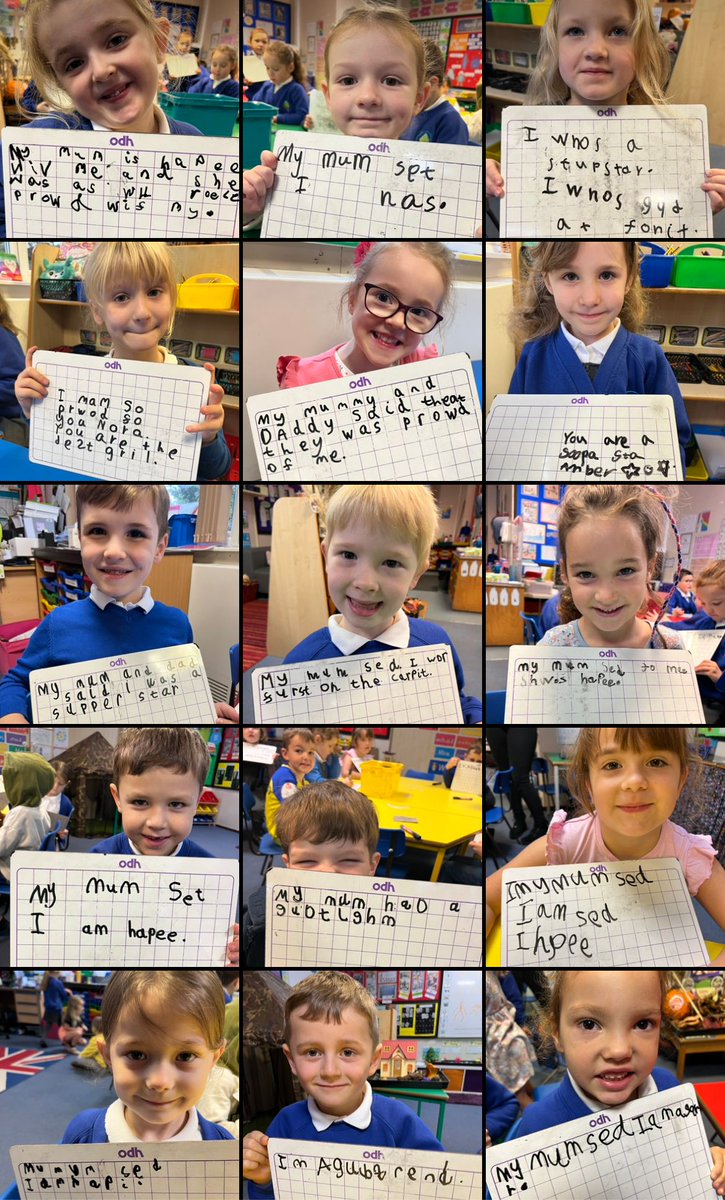 odh
My mum is hapee
viv me and she
was as wu
prowd wis my.
odh
My mum set
I nas.
odh
I whos a
stupstar.
I whos gyd
at fonit.
odh
I mam so
prwod so
you Nora
you are the
dezt gril.
odh
my mummy and
DAddy said theat
they was prowd
of me.
odh
You are a
soopa sta
Amber
odh
My mum and dad
said I was a
supper star
odh
My mum sed. I wor
furst on the carpit.
odh
my mum sed to me
shwos hapee.
odh
My mum set
I am hapee.
odh
My mum haD a
odh
Imymum sed
I am sed
I hpee
odh
odh
Im A
odh
My mumsed Iam